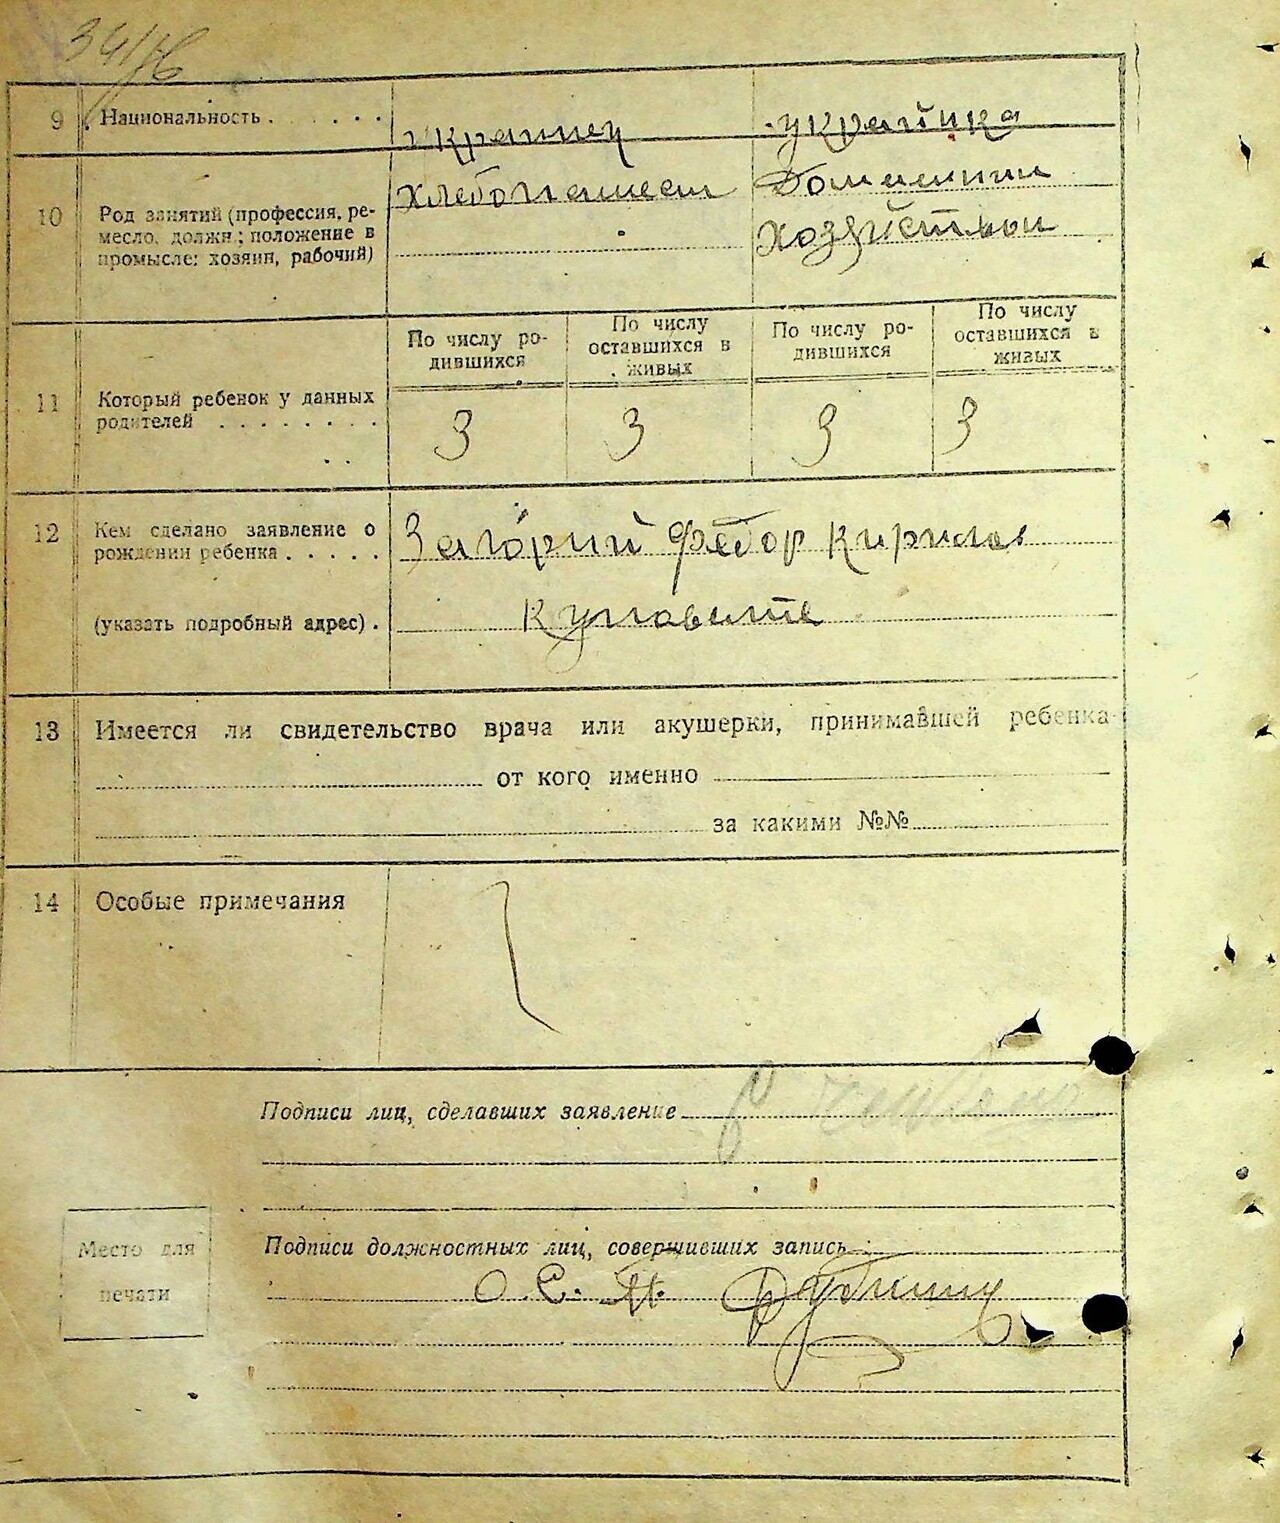 34/16
9 Национальность . . . . . . украинец украинка
10 Род занятий (профессия, ре-
месло, должн.; положение в
промысле: хозяин, рабочий)
хлебопашест Домашним
хозяйством
По числу ро-
дившихся
По числу
оставшихся в
живых
По числу ро-
дившихся
По числу
оставшихся в
живых
11 Который ребенок у данных
родителей . . . . . . . .
3 3 3 3
12 Кем сделано заявление о
рождении ребенка . . . . .
(указать подробный адрес) .
Загорий Федор Кирилов
13 Имеется ли свидетельство врача или акушерки, принимавшей ребенка
от кого именно
за какими №№
14 Особые примечания
Подписи лиц, сделавших заявление
Подписи должностных лиц, совершивших запись
Место для
печати